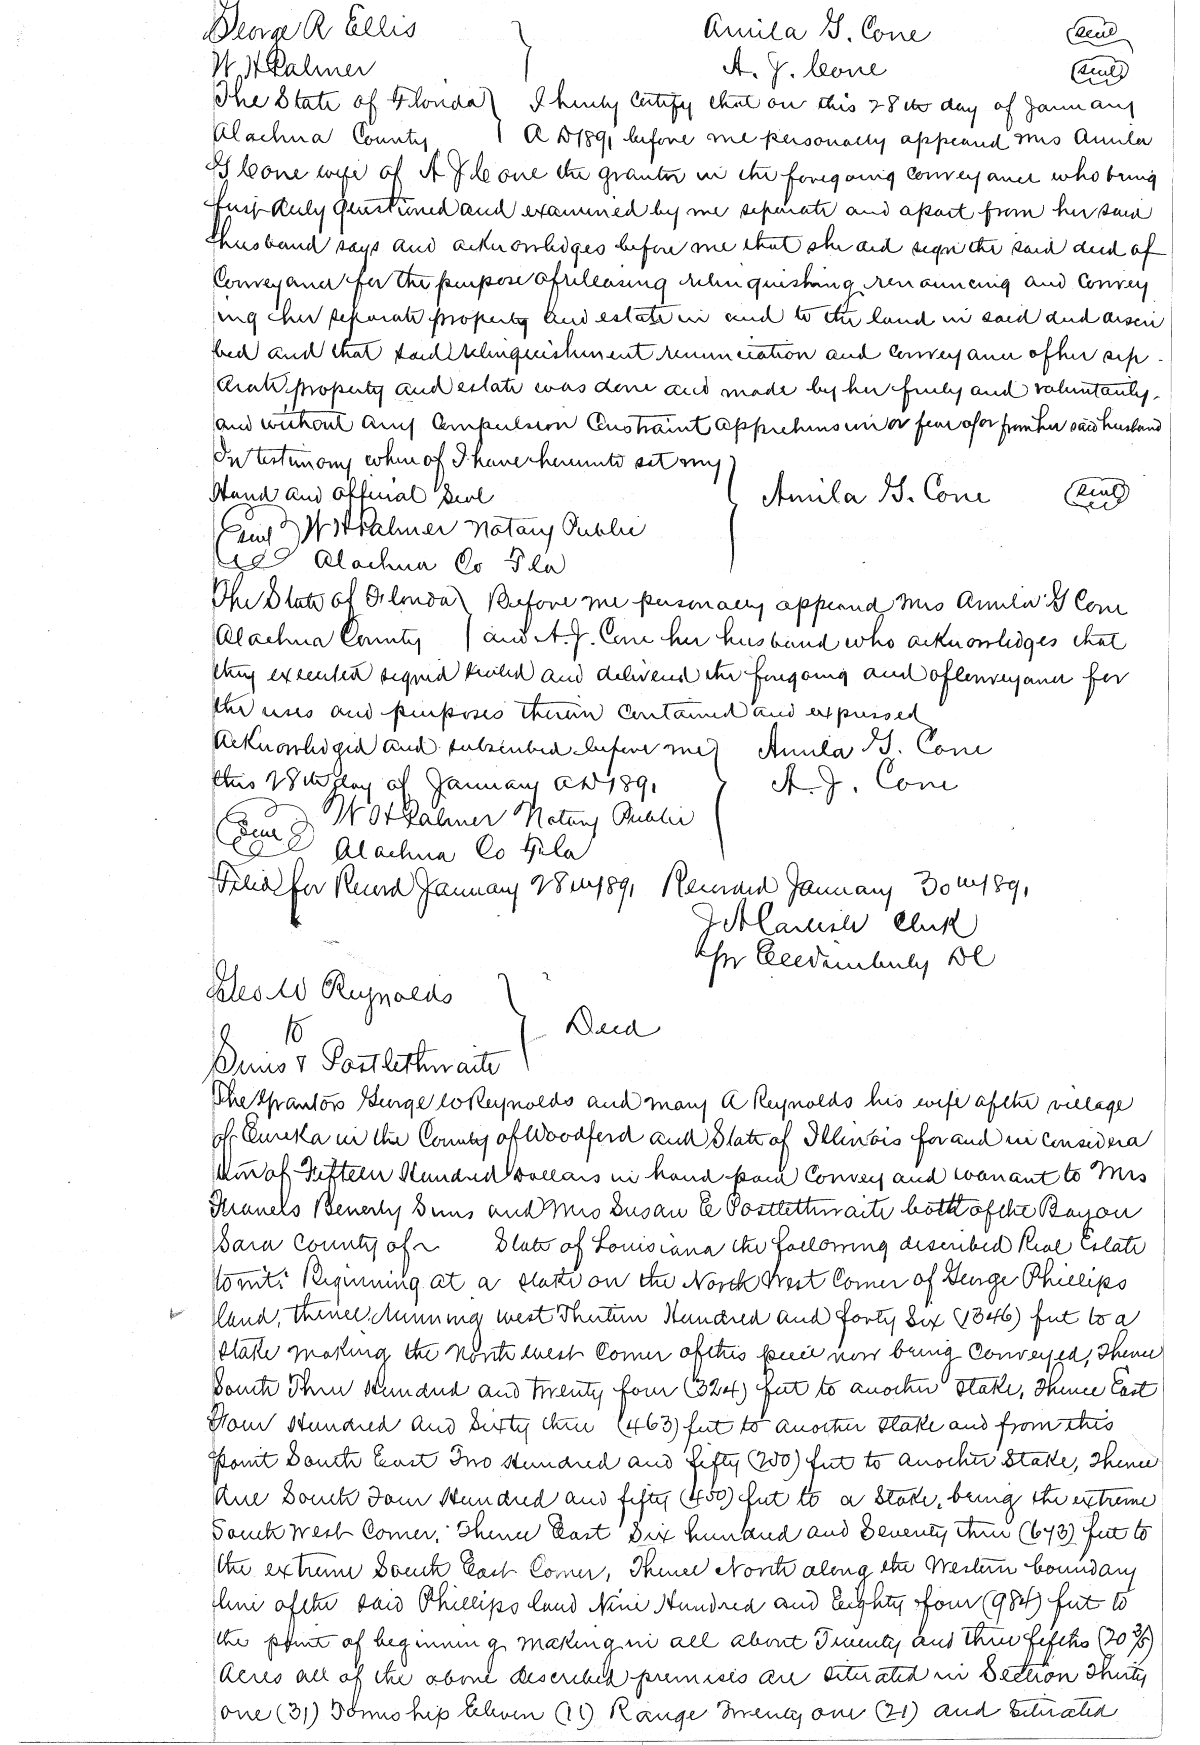 George R Ellis } Amila G. Cone (seal)
W H Palmer A. J. Cone (seal)
The State of Florida } I hereby certify that on this 28th day of January
Alachua County } A D 1891 before me personally appeared Mrs Amila
G Cone wife of A J Cone the grantor in the foregoing conveyance who being
first duly questioned and examined by me separate and apart from her said
husband says and acknowledges before me that she did sign the said deed of
Conveyance for the purpose of releasing relinquishing renouncing and convey
ing her separate property and estate in and to the land in said deed descri
bed and that said relinquishment renunciation and conveyance of her sep-
arate property and estate was done and made by her freely and voluntarily
and without any Compulsion Constraint apprehension or fear of or from her said husband
In testimony whereof I have hereunto set my }
Hand and official Seal Amila G. Cone (seal)
(seal) W H Palmer Notary Public
Alachua Co Fla
The State of Florida } Before me personally appeared Mrs Amila G Cone
Alachua County } and A. J. Cone her husband who acknowledges that
they executed signed sealed and delivered the foregoing deed of Conveyance for
the uses and purposes therein contained and expressed
Acknowledged and subscribed before me } Amila G. Cone
this 28th day of January A D 1891 A. J. Cone
(seal) W H Palmer Notary Public
Alachua Co Fla
Filed for Record January 28th 1891 Recorded January 30th 1891
J A Carlisle Clerk
pr Wimberly DC
Geo W Reynolds }
to Deed
Sims & Postlethwaite
The Grantors George W Reynolds and Mary A Reynolds his wife of the village
of Eureka in the County of Woodford and State of Illinois for and in considera
tion of Fifteen Hundred Dollars in hand paid Convey and warrant to Mrs
Francis Beverly Sims and Mrs Susan E Postlethwaite both of the Bayou
Sara County of ~ State of Louisiana the following described Real Estate
towit: Beginning at a stake on the North West Corner of George Phillips
land, thence running west Thirteen Hundred and forty Six (1346) feet to a
stake making the north west Corner of this piece now being Conveyed, Thence
South Three Hundred and twenty four (324) feet to another Stake, Thence East
Four Hundred and Sixty three (463) feet to another stake and from this
point South East Two Hundred and fifty (250) feet to another Stake, Thence
due South Four Hundred and fifty (450) feet to a Stake, being the extreme
South west Corner, Thence East Six hundred and Seventy three (673) feet to
the extreme South East Corner, Thence North along the Western boundary
line of the said Phillips land Nine Hundred and Eighty four (984) feet to
the point of beginning making in all about Twenty and three fifths (20 3/5)
Acres all of the above described premises are situated in Section Thirty
one (31) Township Eleven (11) Range Twenty one (21) and Situated